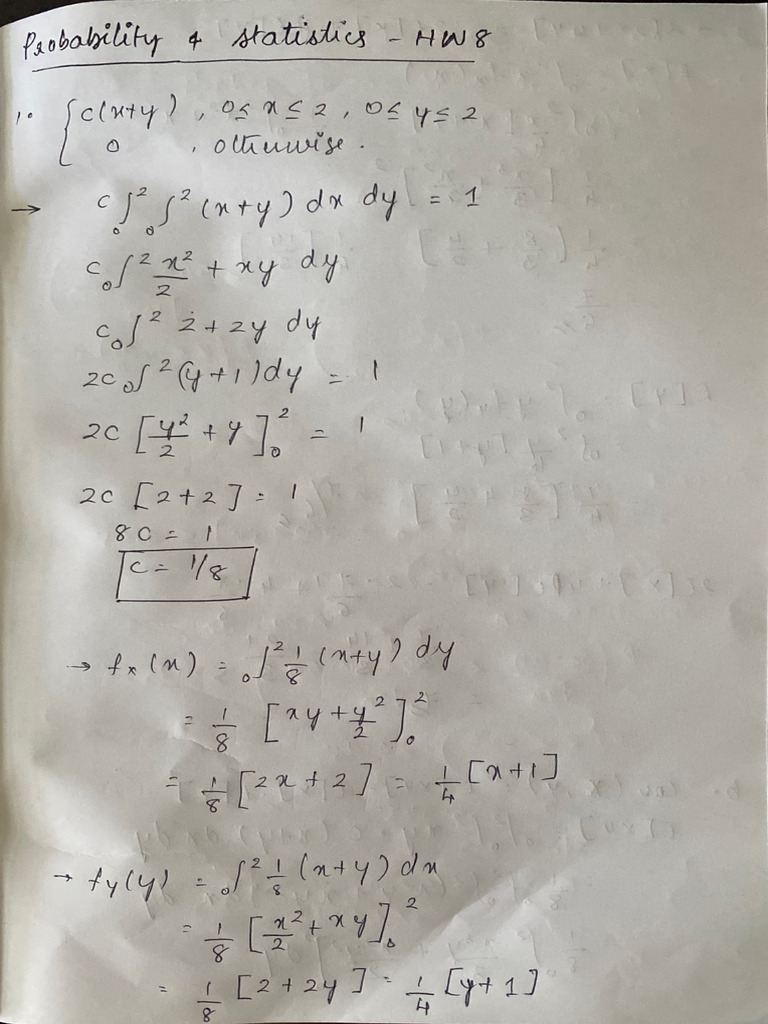 Probability & statistics - HW8
1. { c(x+y) , 0 ≤ x ≤ 2 , 0 ≤ y ≤ 2
0 , otherwise.
→ c ₀∫² ₀∫² (x+y) dx dy = 1
c ₀∫² x²/2 + xy dy
c ₀∫² 2 + 2y dy
2c ₀∫² (y+1) dy = 1
2c [y²/2 + y]₀² = 1
2c [2+2] = 1
8c = 1
c = 1/8
→ fx(x) = ₀∫² 1/8 (x+y) dy
= 1/8 [xy + y²/2]₀²
= 1/8 [2x + 2] = 1/4 [x+1]
→ fy(y) = ₀∫² 1/8 (x+y) dx
= 1/8 [x²/2 + xy]₀²
= 1/8 [2 + 2y] = 1/4 [y+1]